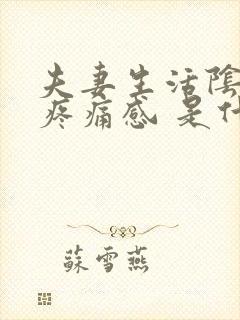 夫妻生活陰
疼痛感 是什
蘇雪燕